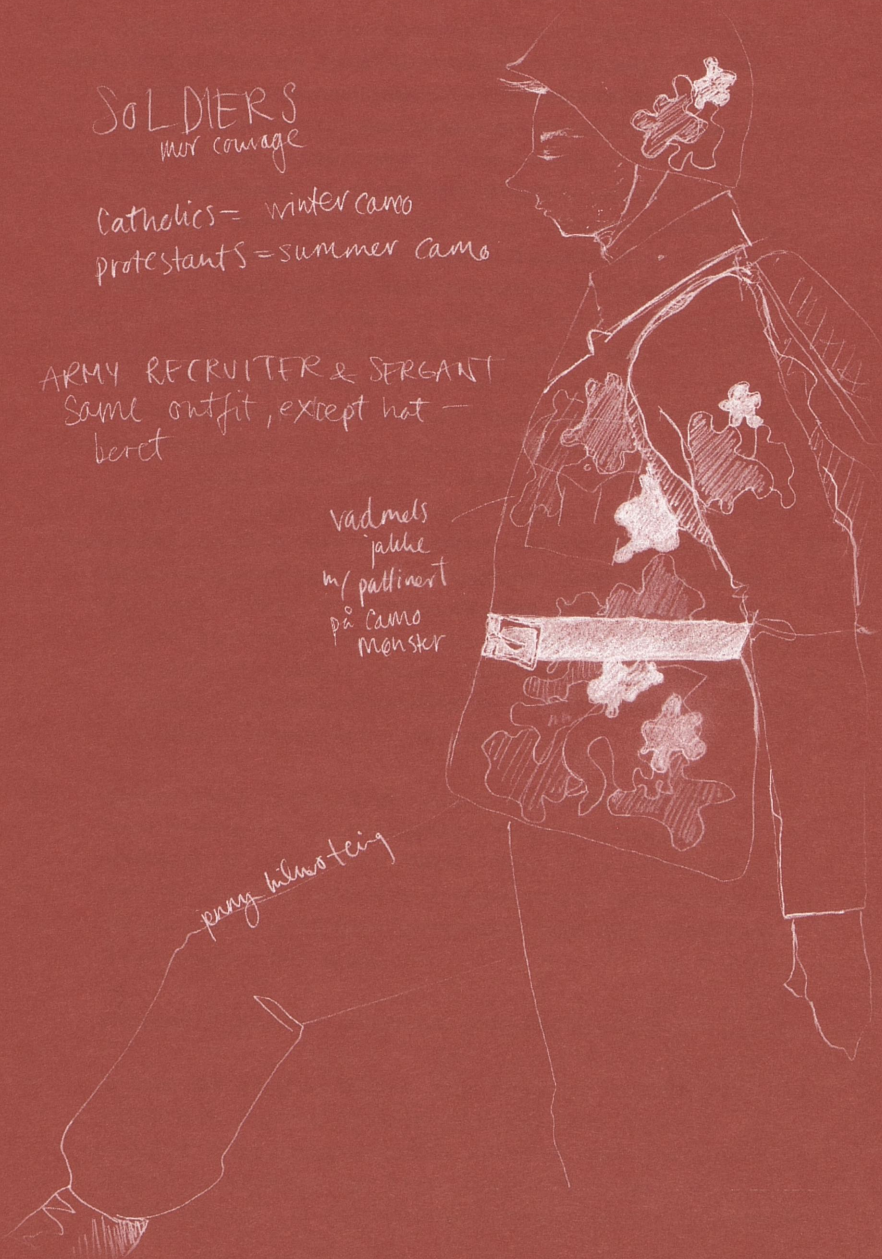 SOLDIERS
mor courage
Catholics = winter camo
protestants = summer camo
ARMY RECRUITER & SERGANT
same outfit, except hat —
beret
vadmels
jakke
m/ pattinert
på camo
mønster
jenny hilmo teig